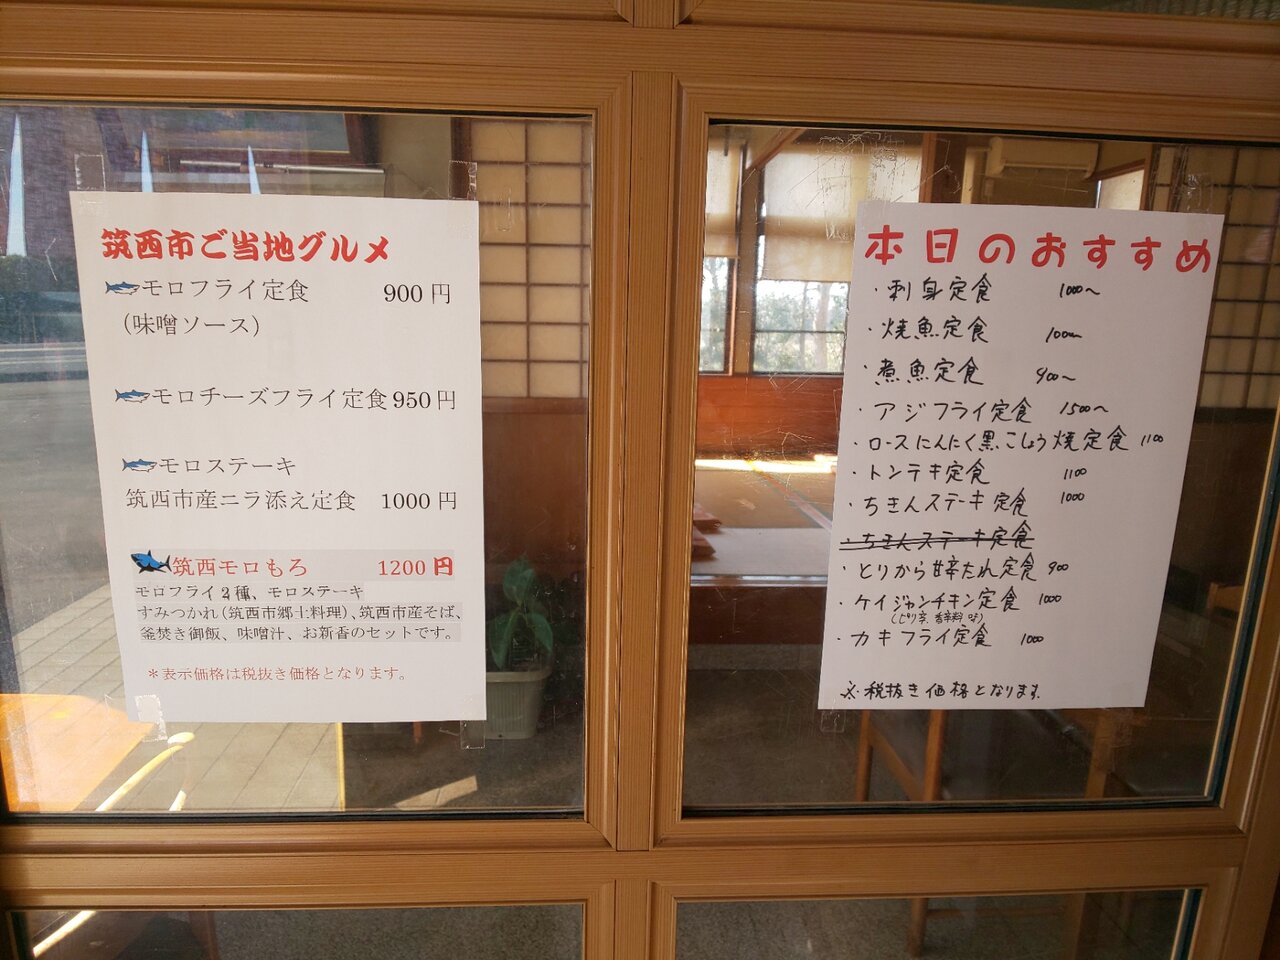 筑西市ご当地グルメ
モロフライ定食 900円
（味噌ソース）
モロチーズフライ定食 950円
モロステーキ
筑西市産ニラ添え定食 1000円
筑西モロもろ 1200円
モロフライ2種、モロステーキ
すみつかれ（筑西市郷土料理）、筑西市産そば、
釜焚き御飯、味噌汁、お新香のセットです。
＊表示価格は税抜き価格となります。
本日のおすすめ
・刺身定食 1000〜
・焼魚定食 1000〜
・煮魚定食 900〜
・アジフライ定食 1500〜
・ロースにんにく黒こしょう焼定食 1100
・トンテキ定食 1100
・ちきんステーキ定食 1000
・ちきんステーキ定食
・とりから甘辛たれ定食 900
・ケイジャンチキン定食 1000
(ピリ辛、香辛料など)
・カキフライ定食 1000
※税抜き価格となります。